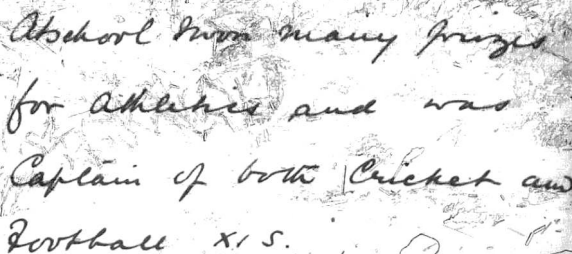 At school I won many prizes
for athletics and was
Captain of both Cricket and
Football XIS.